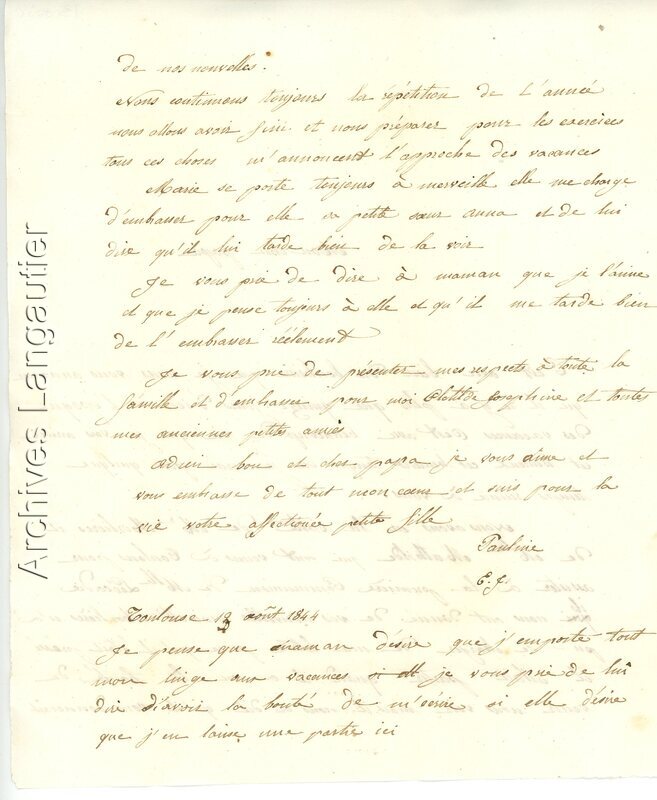 de nos nouvelles.
Nous continuons toujours la répétition de l'année
nous allons avoir fini et nous préparer pour les exercices
tous ces choses m'annoncent l'approche des vacances
Marie se porte toujours à merveille elle me charge
d'embrasser pour elle sa petite sœur anna et de lui
dire qu'il lui tarde bien de la voir
Je vous prie de dire à maman que je l'aime
et que je pense toujours à elle et qu'il me tarde bien
de l'embrasser réélement
Je vous prie de présenter mes respects à toute la
famille et d'embrasser pour moi Clotilde Josephine et toutes
mes anciennes petites amies
adieu bon et cher papa je vous aime et
vous embrasse de tout mon cœur et suis pour la
vie votre affectionée petite fille
Pauline
E. f.
Toulouse août 1844
Je pense que maman désire que j'emporte tout
mon linge aux vacances si elle je vous prie de lui
dire d'avoir la bonté de m'écrire si elle désire
que j'en laisse une partie ici
Archives Langautier